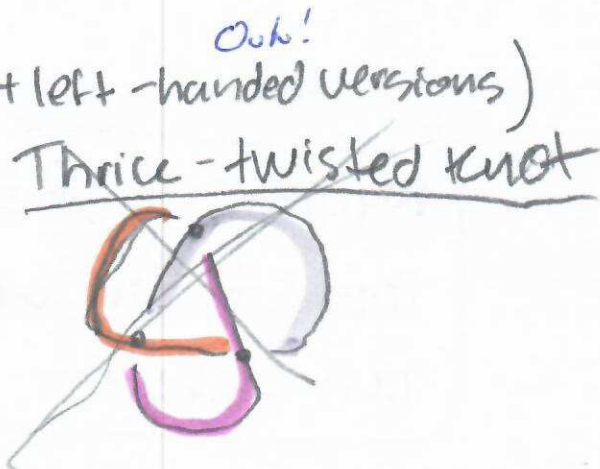 Ooh!
+ left-handed versions)
Thrice-twisted knot